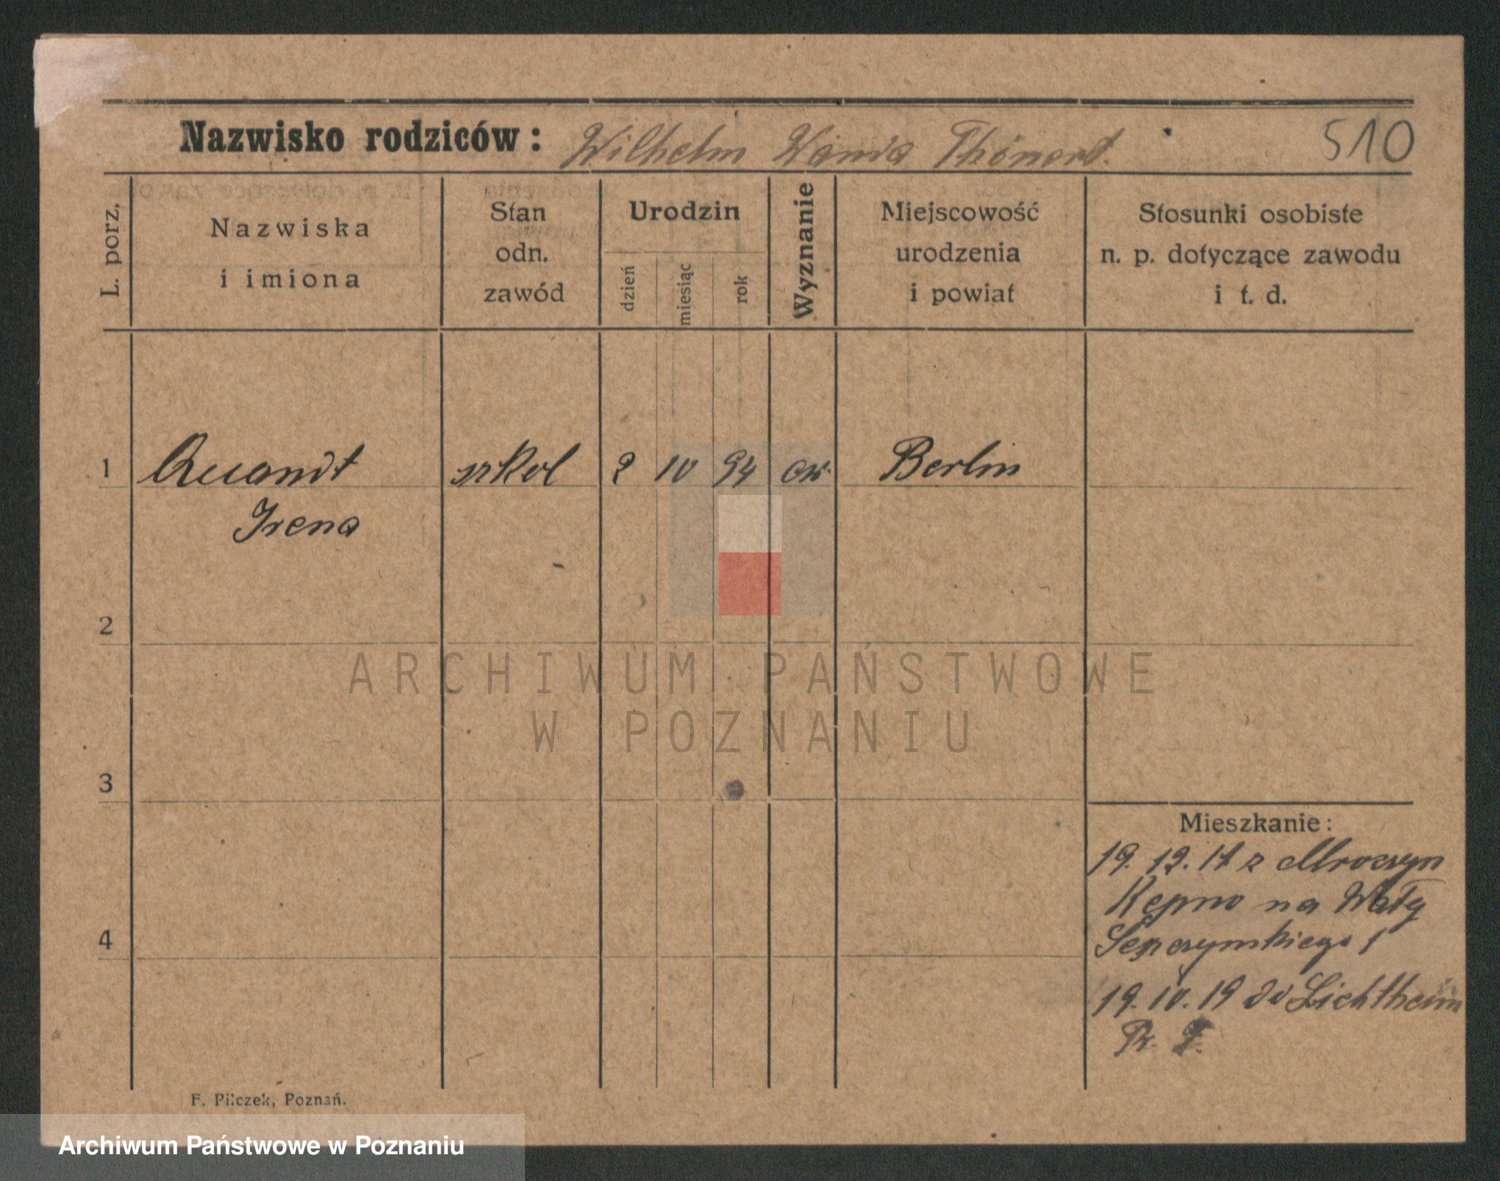 Nazwisko rodziców: Wilhelm Wanda Thönert. 510
L. porz.
Nazwiska
i imiona
Stan
odn.
zawód
Urodzin
dzień
miesiąc
rok
Wyznanie
Miejscowość
urodzenia
i powiat
Stosunki osobiste
n. p. dotyczące zawodu
i t. d.
1 Quandt 2 10 94 ew. Berlin
Irena
2
ARCHIWUM PAŃSTWOWE
W POZNANIU
3
Mieszkanie:
19. 12. z Mroczyn
Kępno na Wały
4
19. 10. 19 do Lichtheim
F. Pilczek, Poznań.
Archiwum Państwowe w Poznaniu